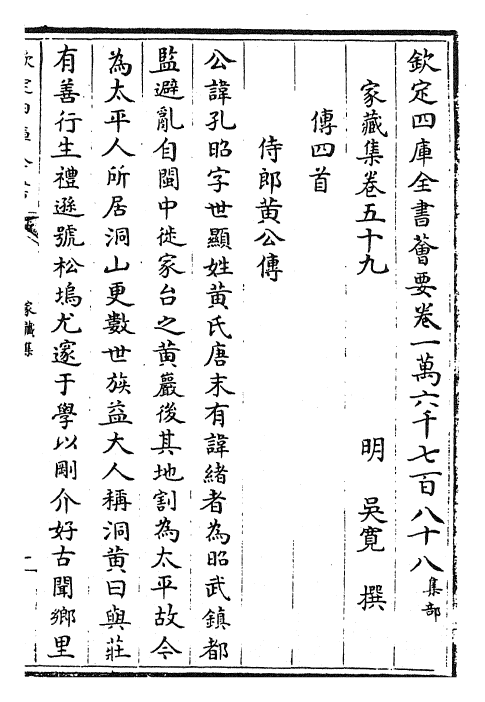 欽定四庫全書薈要卷一萬六千七百八十八 集部
家藏集卷五十九 明 吳寬 撰
傳四首
侍郎黃公傳
公諱孔昭字世顯姓黃氏唐末有諱緒者為昭武鎮都
監避亂自閩中徙家台之黃巖後其地割為太平故今
為太平人所居洞山更數世族益大人稱洞黃曰與莊
有善行生禮遜號松塢尤邃于學以剛介好古聞鄉里
家藏集